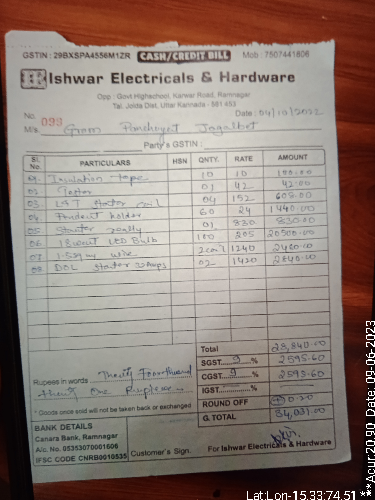 GSTIN : 29BXSPA4556M1ZR CASH/CREDIT BILL Mob : 7507441806
Ishwar Electricals & Hardware
Opp : Govt Highschool, Karwar Road, Ramnagar
Tal. Joida Dist, Uttar Kannada - 581 453
No. 099 Date : 04/10/2022
M/s Gram Panchayat Jagalbet
Party's GSTIN :
Sl. No. PARTICULARS HSN QNTY. RATE AMOUNT
01 Insulation tape 10 10 100.00
02 Tester 01 42 42.00
03 L&T starter coil 04 152 608.00
04 Pendent holder 60 24 1440.00
05 Starter really 01 830 830.00
06 LED Bulb 100 205 20500.00
07 1.5sqmm wire 2coil 1240 2480.00
08 DOL Starter 32Amps 02 1420 2840.00
Total 28,840.00
SGST 9 % 2595.60
CGST 9 % 2595.60
IGST %
Rupees in words Thirty Four thousand
thirty one Rupees
ROUND OFF 0.20
G. TOTAL 34,031.00
* Goods once sold will not be taken back or exchanged
BANK DETAILS
Canara Bank, Ramnagar
A/c. No. 05353070001606
IFSC CODE CNRB0010535
Customer's Sign. For Ishwar Electricals & Hardware
Lat:Lon-15.33:74.51 ***Acur:20.90 Date:09-06-2023